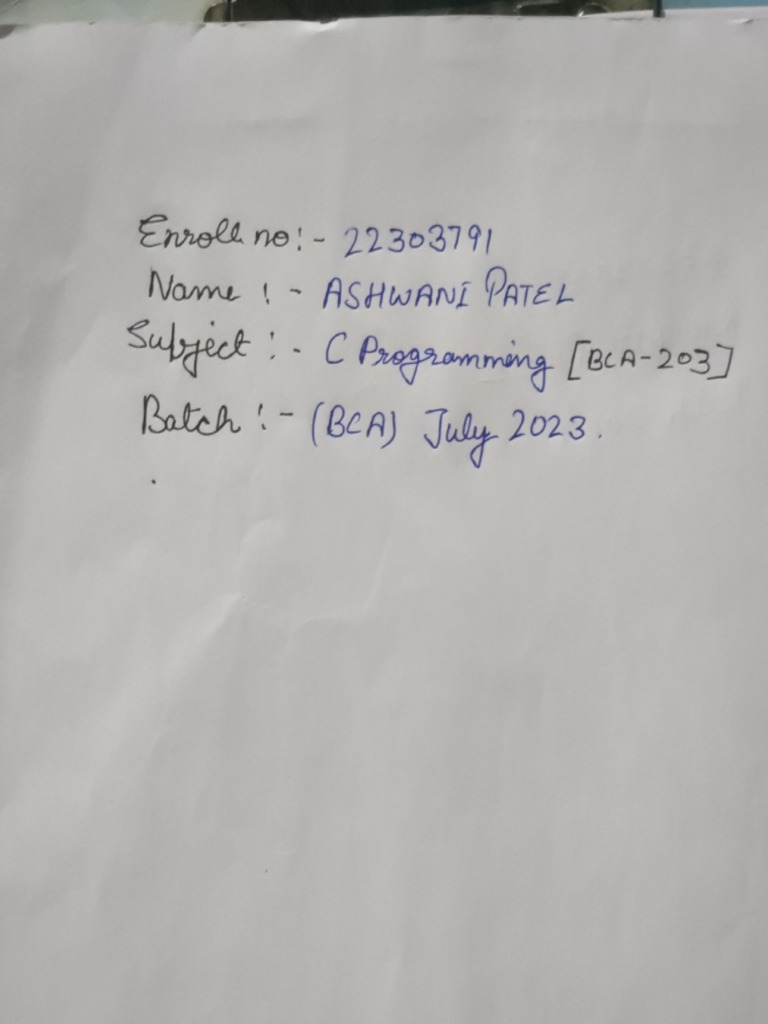 Enroll no:- 22303791
Name :- ASHWANI PATEL
Subject :- C Programming [BCA-203]
Batch :- (BCA) July 2023.